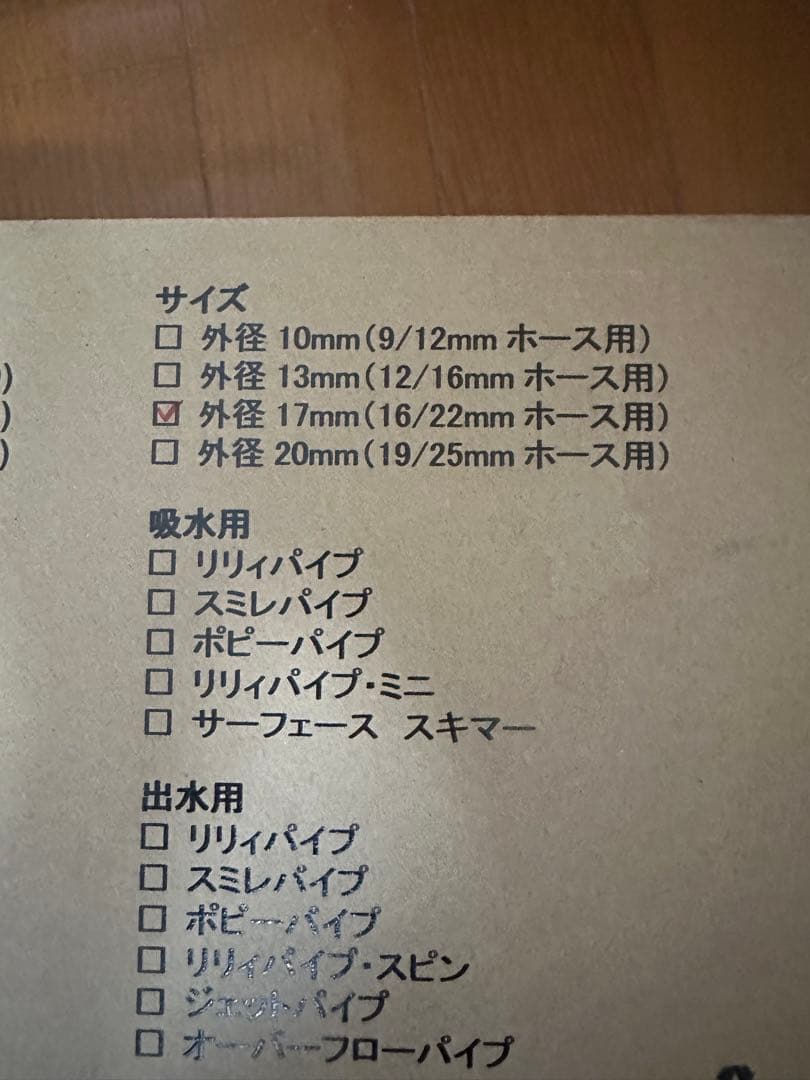 サイズ
☐ 外径 10mm(9/12mm ホース用)
☐ 外径 13mm(12/16mm ホース用)
☑ 外径 17mm(16/22mm ホース用)
☐ 外径 20mm(19/25mm ホース用)
吸水用
☐ リリィパイプ
☐ スミレパイプ
☐ ポピーパイプ
☐ リリィパイプ・ミニ
☐ サーフェース スキマー
出水用
☐ リリィパイプ
☐ スミレパイプ
☐ ポピーパイプ
☐ リリィパイプ・スピン
☐ ジェットパイプ
☐ オーバーフローパイプ